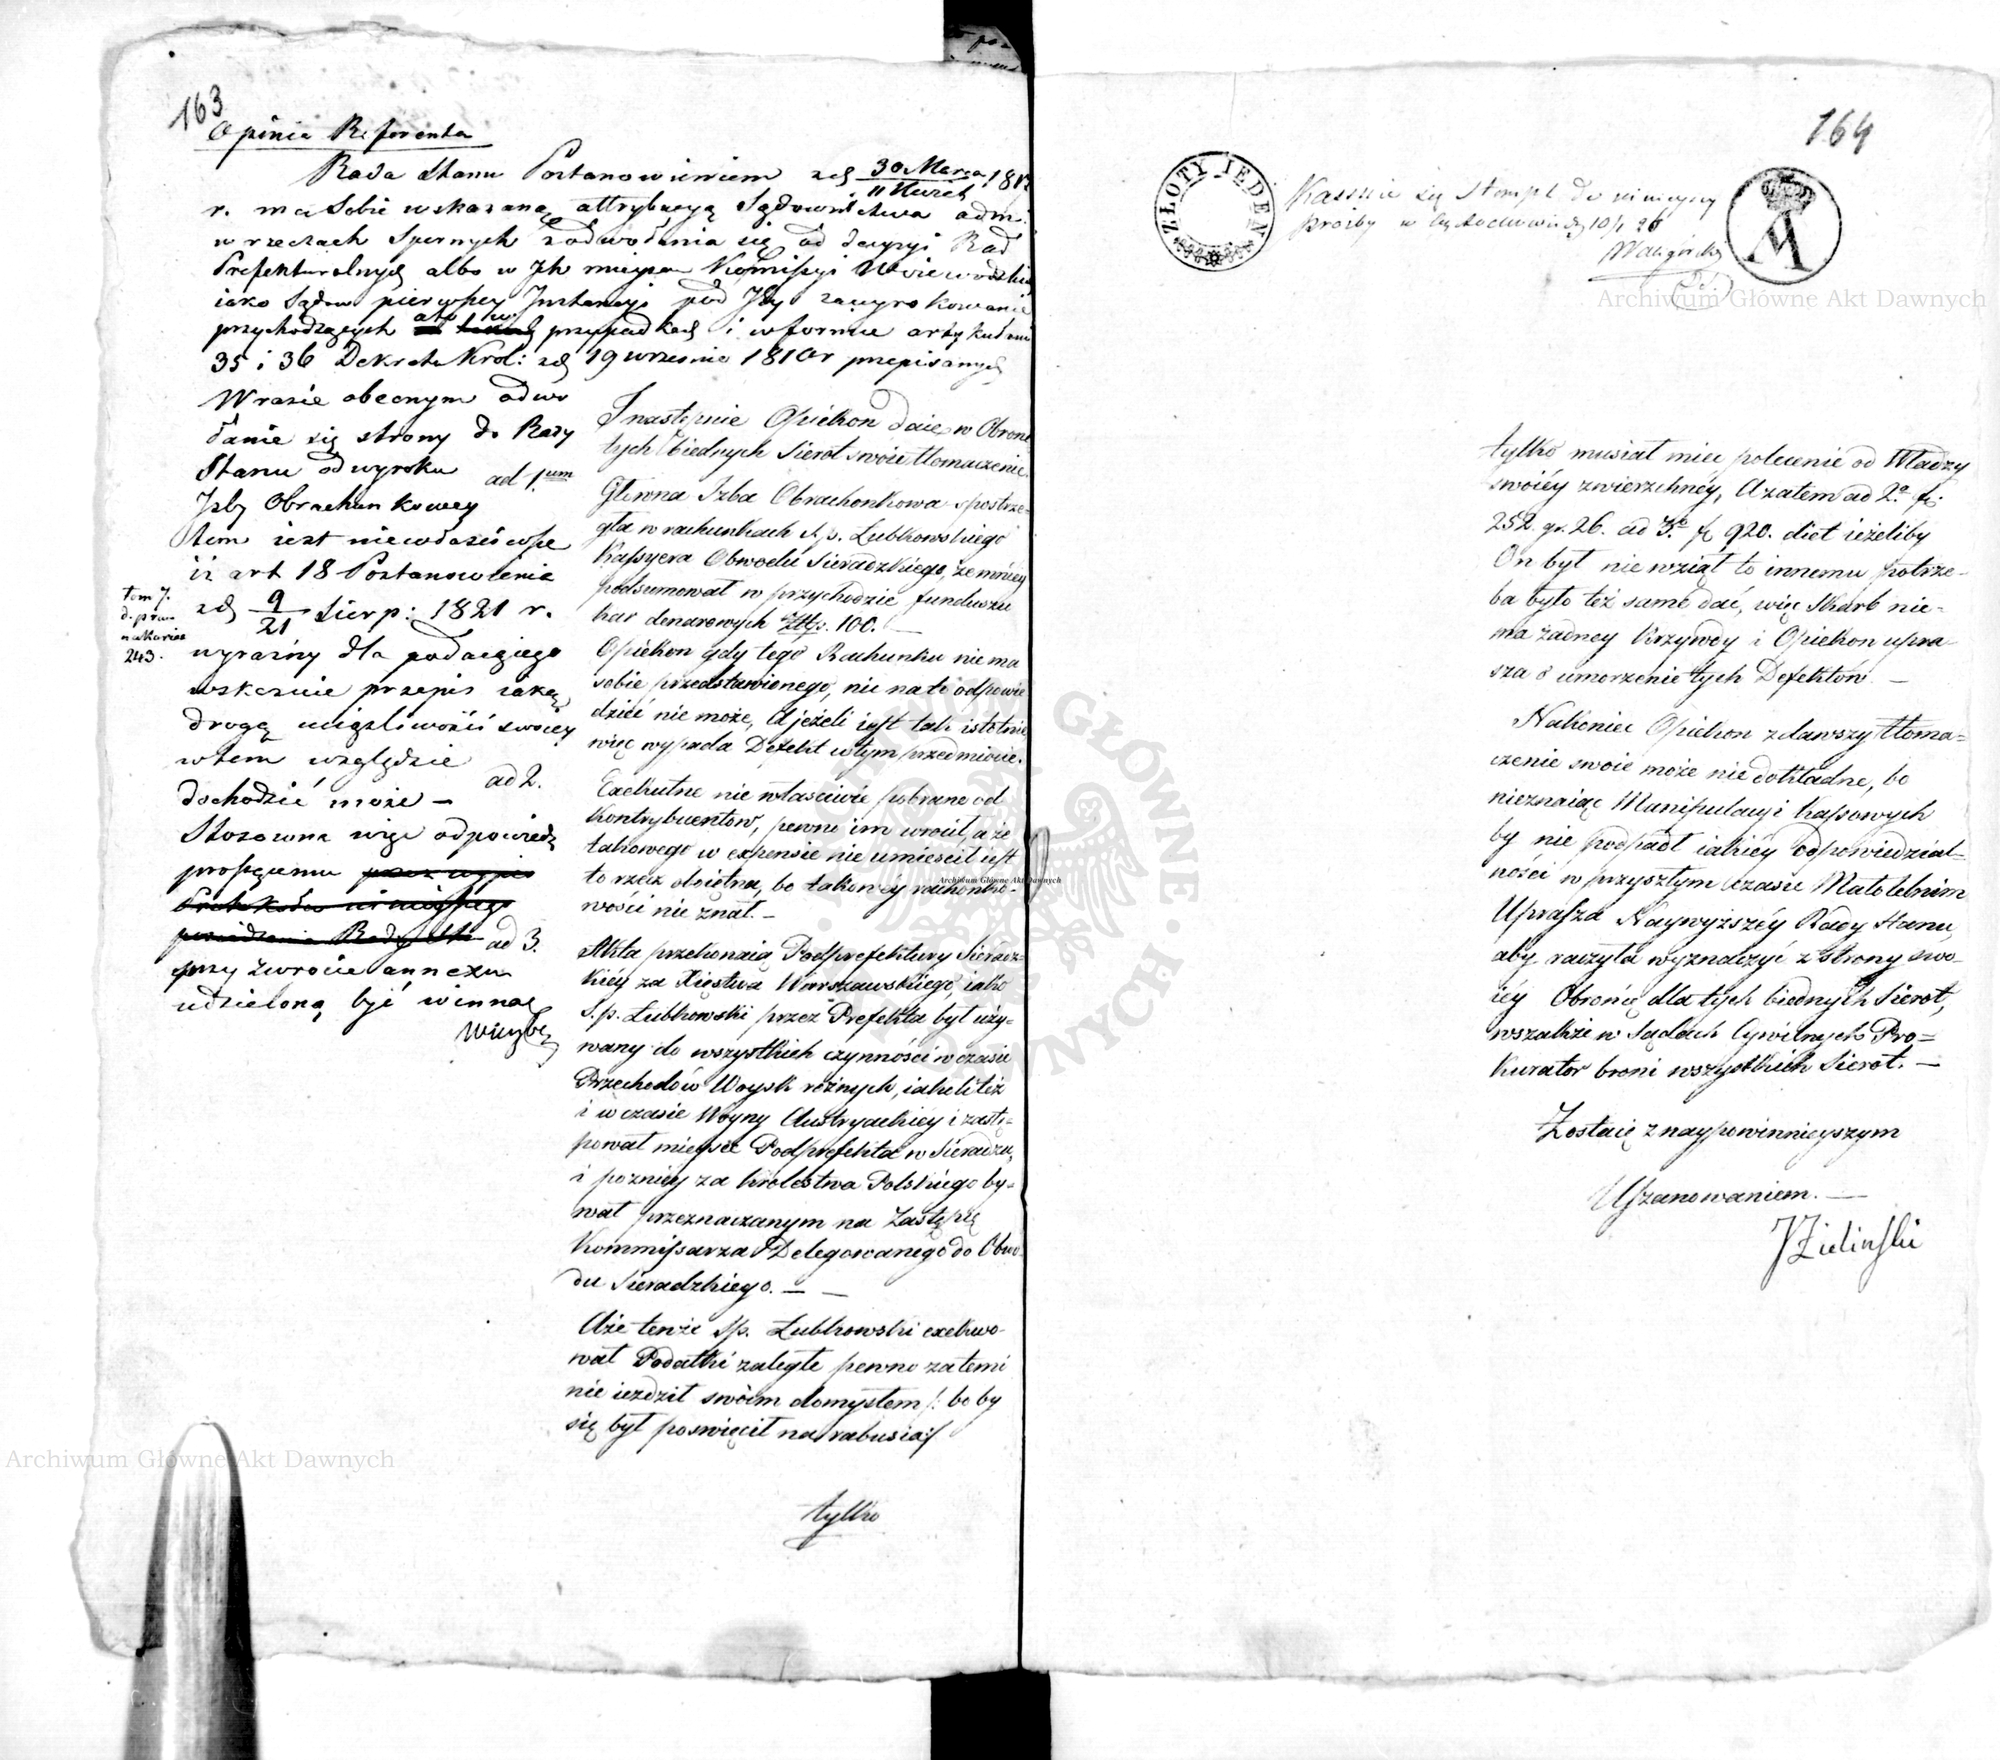 163
Opinia Referenta
Rada Stanu Postanowieniem z d. 30 Marca 181
11 Kwiet
r. ma sobie wskazaną attrybucyą Sądownictwa adm:
w rzeczach spornych z odwołania się od decyzyi Rad
Prefekturalnych albo w Ich mieysce Kommissyi Woiewodzkich
iako Sądów pierwszey Instancyi pod Jey zawyrokowanie
przychodzących a to w przypadkach i w formie artykułami
35 i 36 Dekretu Król: z d. 19 września 1810 r przepisanych
W razie obecnym odwo
łanie się strony do Rady
Stanu od wyroku
Izby Obrachunkowey
tem iest niewłaściwsze
iż art 18 Postanowienia
z d. 9/21 Sierp: 1821 r.
wyraźny dla podaiącego
wskazuie przepis iaką
drogą uciążliwości swoiey
w tem względzie
dochodzić może –
Stosowna więc odpowiedź
proszącemu
przy zwrocie annexu
udzieloną być winna
tom 7.
d. praw
na karcie
243.
ad 1.um
ad 2.
ad 3.
I następnie Opiekon daie w Obronie
tych biednych Sierot swoie tłomaczenie.
Główna Izba Obrachonkowa spostrze-
gła w rachunkach S.p. Lubkowskiego
Kassyera Obwodu Sieradzkiego, że mniéy
podsumował w przychodzie funduszu
kar denarowych Złłp. 100. –
Opiekon gdy tego Rachunku nie ma
sobie przedstawionego, nic na to odpowie
dzieć nie może, A jeżeli iest tak istotnie
więc wypada Defekt w tym przedmiocie.
Exekutne nie właściwie pobrane od
Kontrybuentow, pewno im wrócił, a że
takowego w expensie nie umieścił iest
to rzecz oboiętna, bo takowéy rachonko-
wości nie znał. –
Akta przekonaią Podprefektury Sieradz-
kiéy za Xięstwa Warszawskiego, iako
S.p. Lubkowski przez Prefekta był uży-
wany do wszystkich czynności w czasie
Przechodów Woysk rożnych, iakoli też
i w czasie Woyny Austryackiey i zastę-
pował mieysce Podprefekta w Sieradzu,
i pozniéy za Krolestwa Polskiego by-
wał przeznaczanym na Zastępcę
Kommissarza Delegowanego do Obwo-
du Sieradzkiego. –
A że tenże Sp. Lubkowski exekwo-
wał Podatki zaległe pewno za temi
nie iezdził swoim domysłem /: bo by
się był poswięcił na rabusia :/
tylko
164
ZŁOTY JEDEN
Kassuie się Stempl do ninieyszey
prośby w
tylko musiał miec polecenie od Władzy
swoiéy zwierzchnéy, A zatem ad 2.o f.
252. gr. 26. ad 3.o f. 920. diet ieżeliby
On był nie wziął to innemu potrze-
ba było też same dać, więc Skarb nie-
ma żadney Krzywdy i Opiekon upra-
sza o umorzenie tych Defektow. –
Nakoniec Opiekon zdawszy tłoma-
czenie swoie może nie dokładne, bo
nieznaiąc Manipulacyi Kassowych
by nie podpadł iakiéy odpowiedzial-
ności w przyszłym czasie Małoletnim
Uprasza Naywyższéy Rady Stanu,
aby raczyła wyznaczyć z strony swo-
iéy Obrońcę dla tych biednych Sierot,
wszakże w Sądach Cywilnych Pro-
kurator broni wszystkich Sierot. –
Zostaię z naypowinnieyszym
Uszanowaniem. –
JZielinski
Archiwum Główne Akt Dawnych
Archiwum Główne Akt Dawnych
Archiwum Główne Akt Dawnych